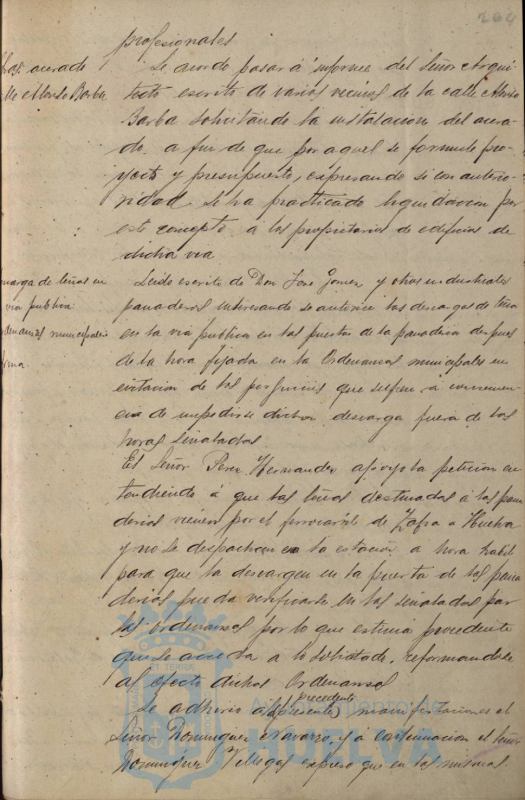 204
profesionales
acerado
calle Alonso Barba
Se acordó pasar á informe del Señor Arqui
tecto escrito de varios vecinos de la calle Alonso
Barba solicitando la instalación del acera-
do a fin de que por aquel se formule pro-
yecto y presupuesto, expresando si con anterio-
ridad se ha practicado liquidación por
este concepto a los propietarios de edificios de
dicha via
descarga de leñas en
via publica
ordenanzas municipales
Leido escrito de Don José Gomez y otros industriales
panaderos interesando se autorice las descargas de leña
en la via publica en las puertas de la panaderia despues
de la hora fijada en la Ordenanzas municipales en
evitacion de los perjuicios que sufren á consecuen-
cia de impedirse dicha descarga fuera de las
horas señaladas.
El Señor Perez Hernandez apoyó la petición en
tendiendo á que las leñas destinadas á las pana
derias vienen por el ferrocarril de Zafra a Huelva
y no se despachan en la estación a hora habil
para que la descarga en la puerta de las pana
derias pueda verificarse en las señaladas por
las ordenanzas por lo que estima procedente
que se acceda a lo solicitado, reformandose
al efecto dichas Ordenanzas
Se adhirió a las precedente manifestaciones el
Señor Dominguez Navarro, y á continuación el Señor
Dominguez y Megas expuso que en las mismas
Ayuntamiento de
HUELVA